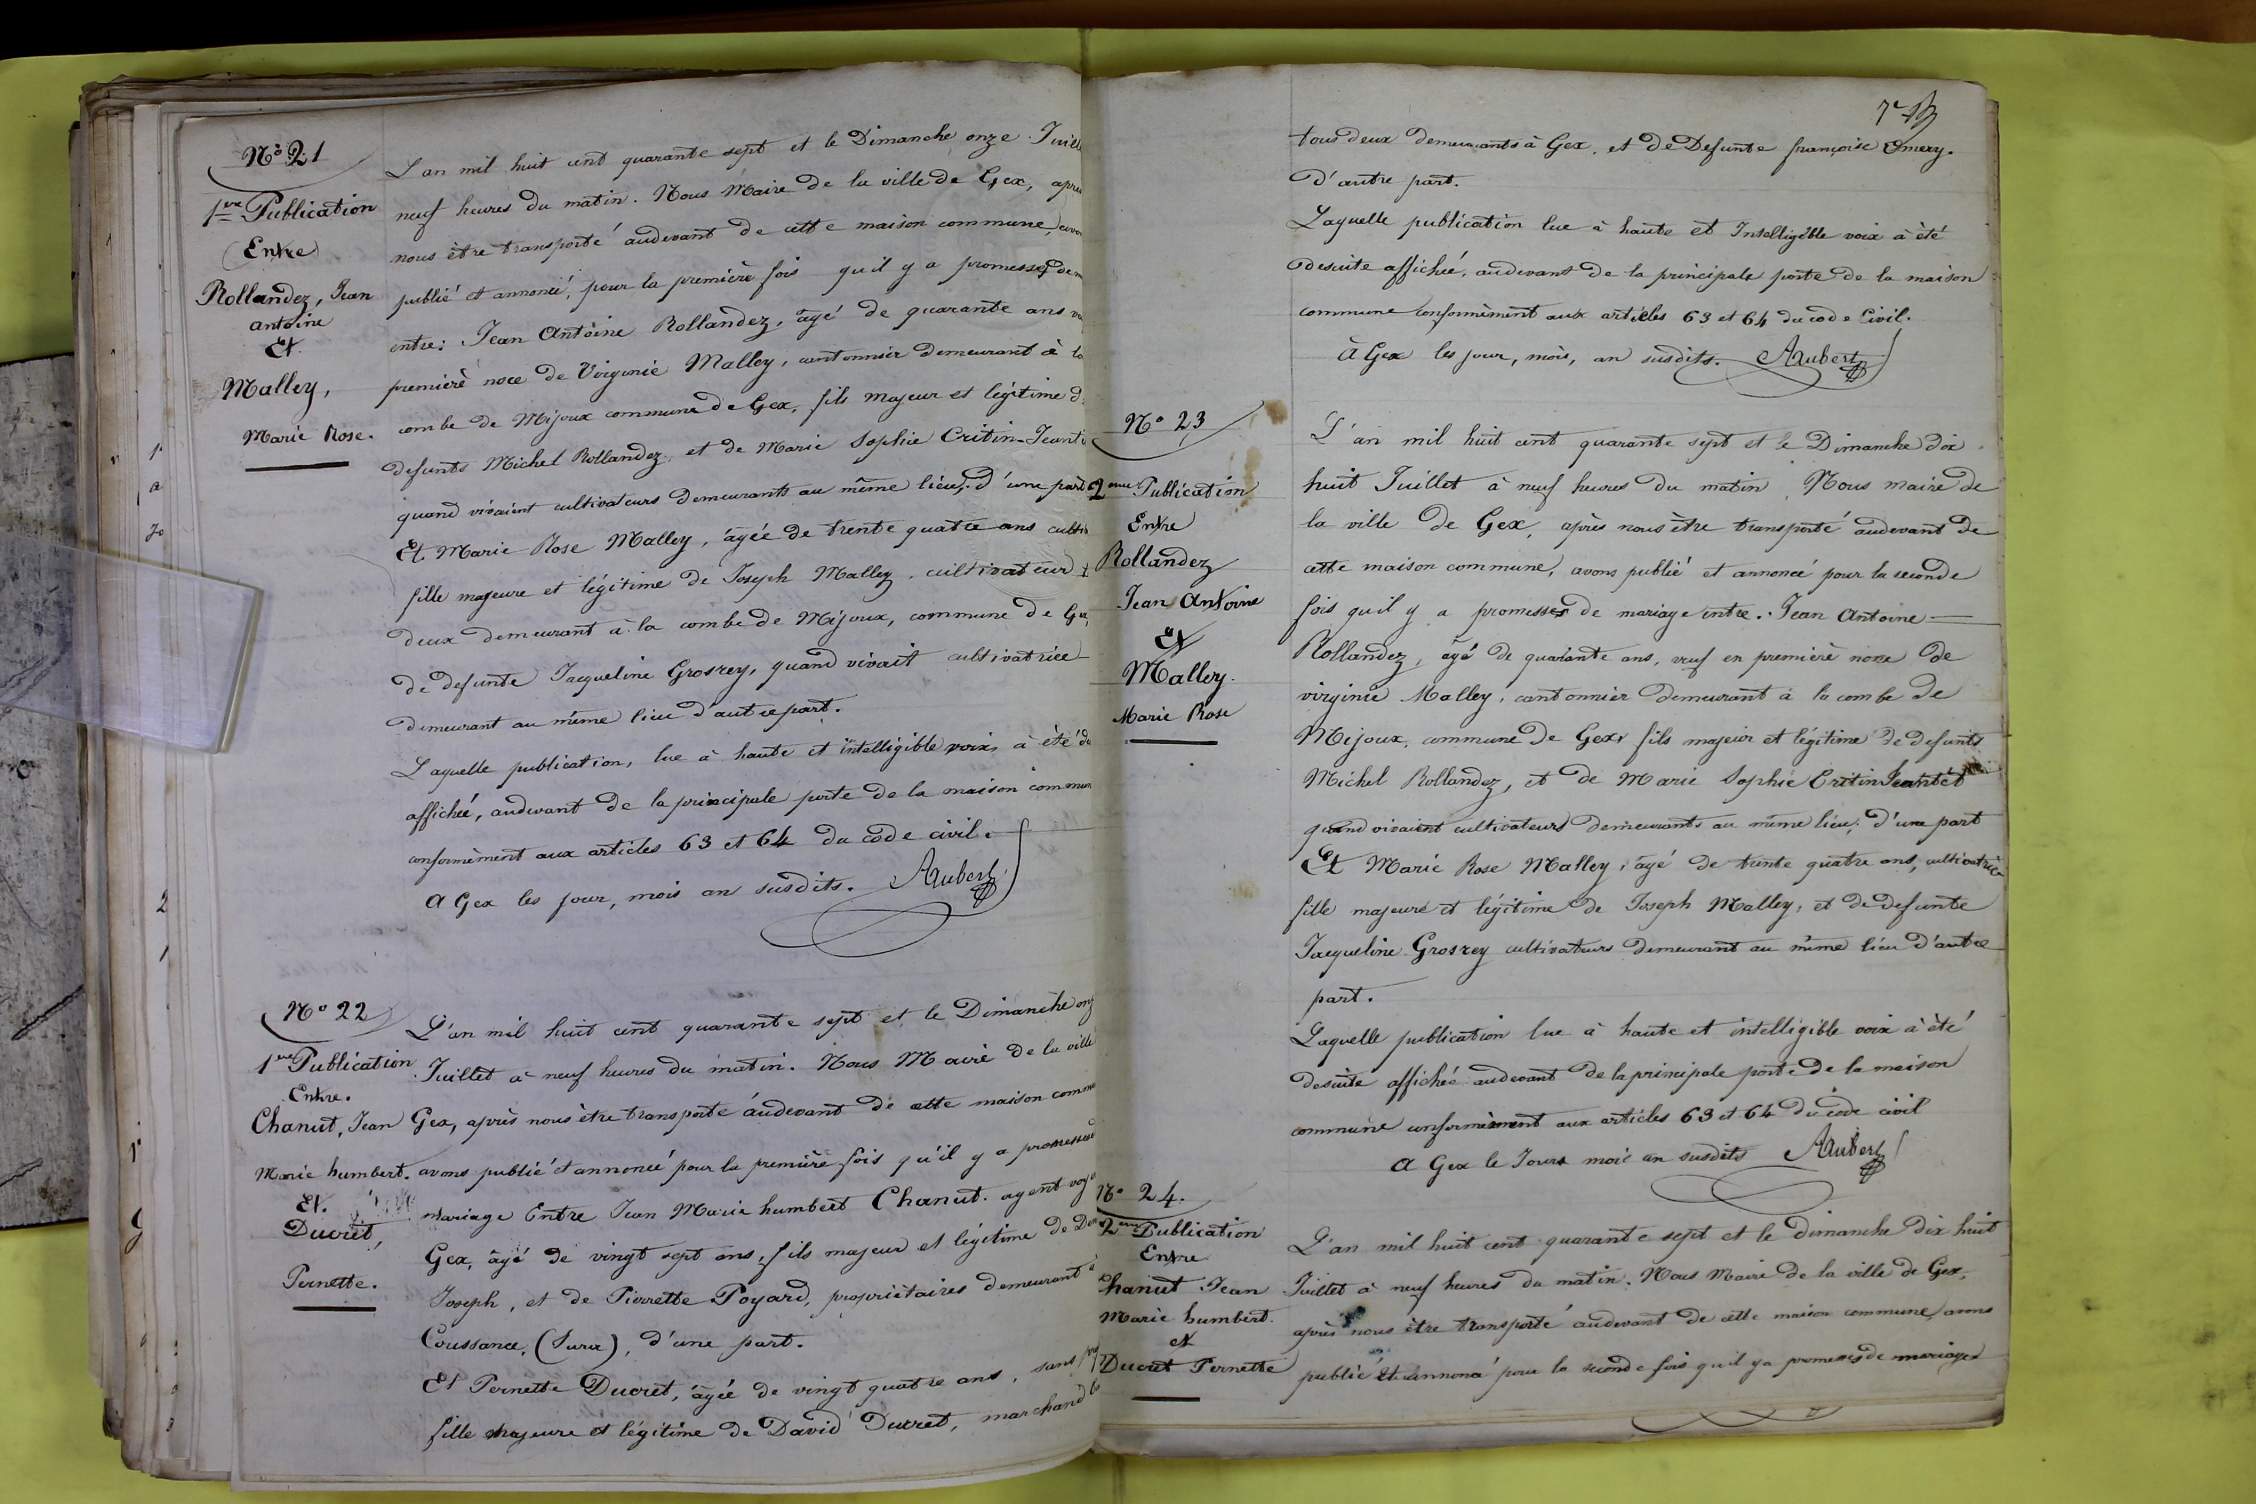 No 21
1ere Publication
Entre
Rollandez, Jean
antoine
Et
Malley,
Marie Rose.
L'an mil huit cent quarante sept et le Dimanche onze Juill
neuf heures du matin. Nous Maire de la ville de Gex, après
nous être transporté audevant de cette maison commune, avon
publié et annoncé, pour la première fois qu'il y a promesses de m
entre: Jean Antoine Rollandez, âgé de quarante ans
première noce de Virginie Malley, cantonnier demeurant à la
combe de Mijoux commune de Gex, fils majeur et légitime d
defunts Michel Rollandez, et de Marie Sophie Critin-Jeant
quand vivaient cultivateurs demeurants au même lieu, d'une part
Et Marie Rose Malley, âgée de trente quatre ans cultiv
fille majeure et légitime de Joseph Malley, cultivateur
deux demeurant à la combe de Mijoux, commune de Gex,
de defunte Jacqueline Grosrey, quand vivait cultivatrice
demeurant au même lieu d'autre part.
Laquelle publication, lue à haute et intelligible voix, à été de
affichée, audevant de la principale porte de la maison commun
conformèment aux articles 63 et 64 du code civil.
A Gex les jour, mois an susdits. Aubert
No 22
1ere Publication
Entre.
Chanut, Jean
Marie humbert.
Et.
Ducret,
Pernette.
L'an mil huit cent quarante sept et le Dimanche onz
Juillet à neuf heures du matin. Nous Maire de la ville
Gex, après nous être transporté audevant de cette maison comm
avons publié et annoncé pour la première fois qu'il y a promesses d
mariage Entre Jean Marie humbert Chanut. agent voy
Gex, âgé de vingt sept ans, fils majeur et légitime de
Joseph, et de Pierrette Poyard, propriètaires demeurant à
Coussance, (Jura), d'une part.
Et Pernette Ducret, âgée de vingt quatre ans, sans
fille majeure et légitime de David Ducret, marchand
7
tous deux demeurants à Gex, et de Defunte françoise Emery.
d'autre part.
Laquelle publication lue à haute et Intelligible voix à été
desuite affichée, audevant de la principale porte de la maison
commune conformèment aux articles 63 et 64 du code Civil.
à Gex les jour, mois, an susdits. Aubert
No 23
2eme Publication
Entre
Rollandez
Jean Antoine
Et
Malley.
Marie Rose
L'an mil huit cent quarante sept et le Dimanche dix
huit Juillet à neuf heures du matin. Nous maire de
la ville de Gex, après nous être transporté audevant de
cette maison commune, avons publié et annoncé pour la seconde
fois qu'il y a promesses de mariage entre. Jean Antoine
Rollandez, âgé de quarante ans, veuf en première noce de
virginie Malley, cantonnier demeurant à la combe de
Mijoux, commune de Gex, fils majeur et légitime de defunts
Michel Rollandez, et de Marie Sophie Critin Jeantet
quand vivaient cultivateurs demeurants au même lieu, d'une part
Et Marie Rose Malley, âgé de trente quatre ans, cultivatrice
fille majeure et légitime de Joseph Malley, et de defunte
Jacqueline Grosrey cultivateurs demeurant au même lieu d'autre
part.
Laquelle publication lue à haute et intelligible voix à été
desuite affichée audevant de la principale porte de la maison
commune conformèment aux articles 63 et 64 du code civil
A Gex le Jours mois an susdits Aubert
No 24.
2eme Publication
Entre
Chanut Jean
Marie humbert.
et
Ducret Pernette
L'an mil huit cent quarante sept et le dimanche dix huit
Juillet à neuf heures du matin. Nous Maire de la ville de Gex,
après nous être transporté audevant de cette maison commune, avons
publié et annoncé pour la seconde fois qu'il y a promesses de mariage